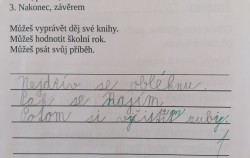 3. Nakonec, závěrem
Můžeš vyprávět děj své knihy.
Můžeš hodnotit školní rok.
Můžeš psát svůj příběh.
Nejdřív se obléknu.
se najím.
Potom si vyčistím zuby.